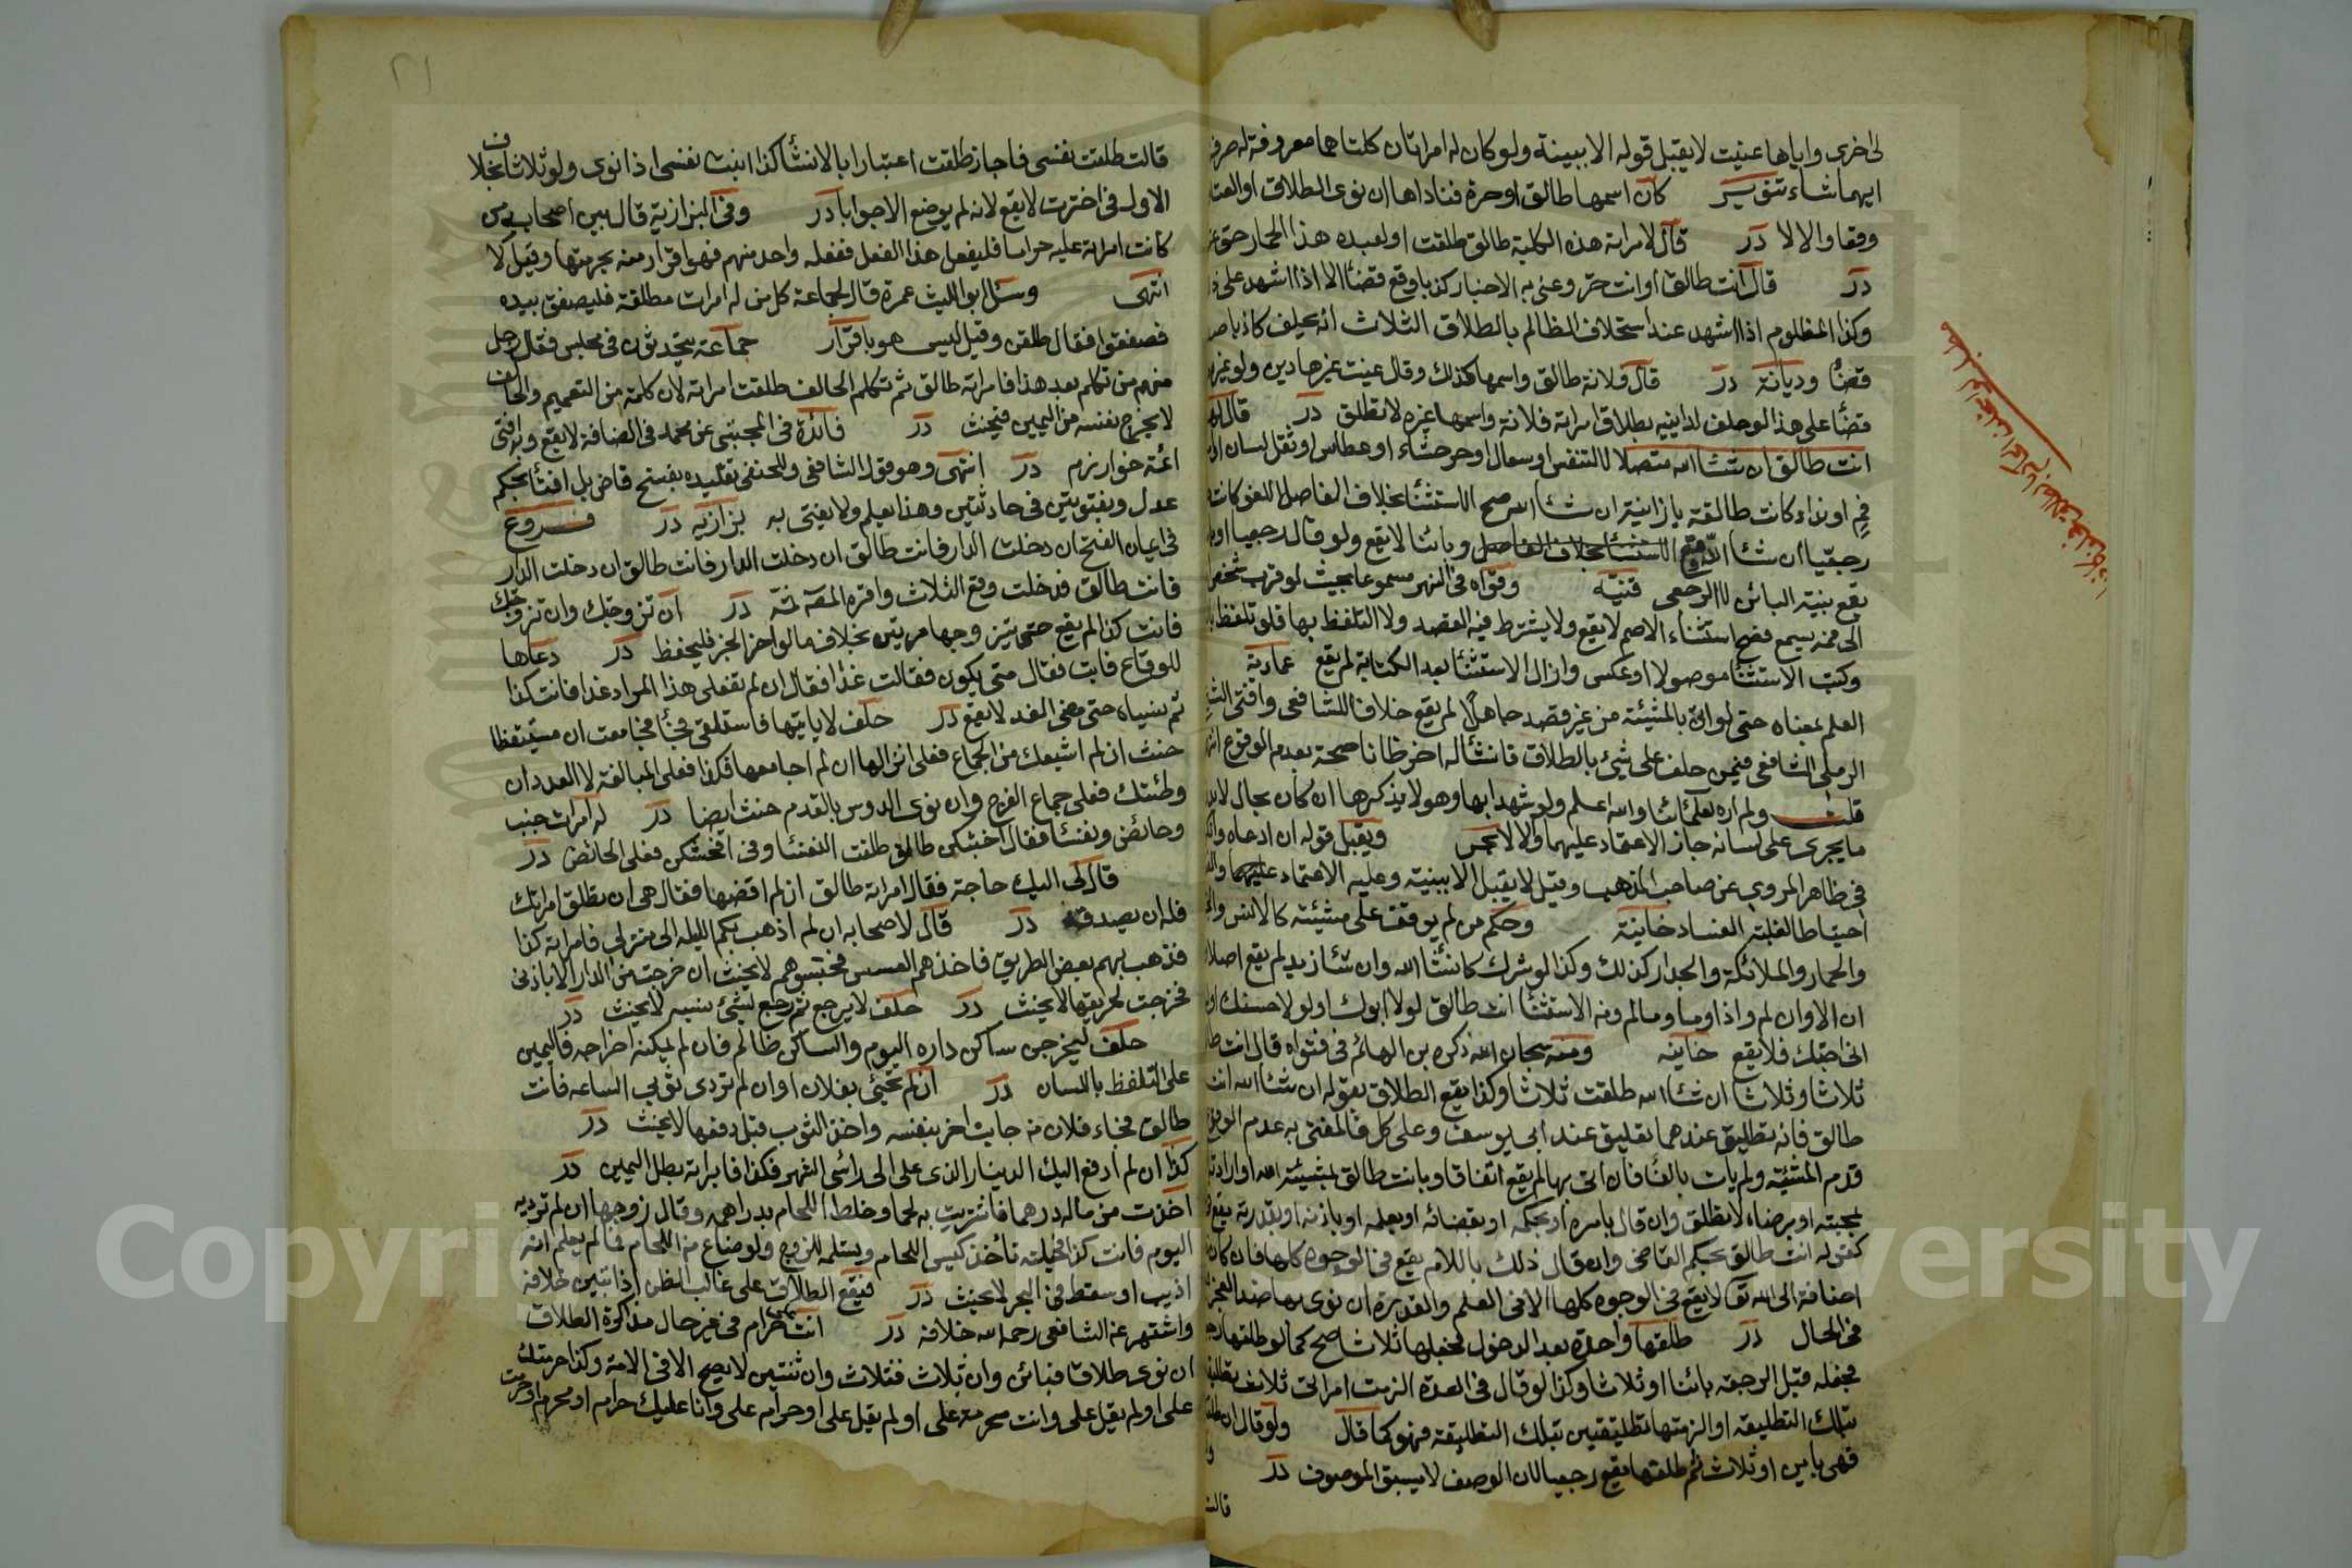 لى اخرى واياها عنيت لا يقبل قوله الا ببينة ولو كان له امراتان كلتاهما معروفة له صرف
ايهما شاء تنوير كان اسمها طالق او حرة فناداها ان نوى الطلاق او العتا
وقعا والا لا در قال لامراته هذه الكلبة طالق طلقت او لعبده هذا الحمار حر عتق
در قال انت طالق او انت حر وعنى به الاخبار كذبا وقع قضأ الا اذا اشهد على
وكذا المظلوم اذا اشهد عند استحلاف الظالم بالطلاق الثلاث انه يحلف كاذبا
قضأ وديانة در قال فلانة طالق واسمها كذلك وقال عنيت غيرها دين ولو غيره
قضأ على هذا لو حلف لداينه بطلاق امراته فلانة واسمها غيره لا تطلق در قال لها
انت طالق ان شأ الله متصلا الا لتنفس او سعال او جشاء او عطاس او ثقل لسان او
فم او نداء كانت طالقة يا زانية ان شأ الله صح الاستثنأ بخلاف الفاصل اللغو كانت
رجعيا ان شأ الله وقع وبائنا لا يقع ولو قال رجعيا او
يقع بنية البائن لا الرجعى قنية وقواه فى النهر مسموعا بحيث لو قرب شخص
الى فمه يسمع فصح استثناء الاصم لا يقع ولا يشترط فيه القصد ولا التلفظ بها فلو تلفظ
وكتب الاستثنا موصولا او عكس وازال الاستثنأ بعد الكتابة لم يقع عمادية
العلم بمعناه حتى لو اتى بالمشيئة من غير قصد جاهلا لم يقع خلافا للشافعى وافتى الشيخ
الرملى الشافعى فيمن حلف على شئ بالطلاق فانشأ له اخر ظانا صحته بعدم الوقوع انتهى
قلت ولم اره لعلمائنا والله اعلم ولو شهدا بها وهو لا يذكرها ان كان بحال لا يدرى
ما يجرى على لسانه جاز الاعتماد عليهما والا لا بحر ويقبل قوله ان ادعاه وانكر
فى ظاهر المروي عن صاحب المذهب وقيل لا يقبل الا ببينة وعليه الاعتماد
احتياطا لغلبة الفساد خانية وحكم من لم يوقف على مشيئته كالانس والجن
والحمار والملائكة والجدار كذلك وكذا لو شرك كان شأ الله وان شأ زيد لم يقع اصلا
ان الا وان لم واذا وما وما لم ومنه الاستثنأ انت طالق لولا ابوك او لولا حسنك او
انى احبك فلا يقع خانيه ومنه سبحان الله ذكره بن الهائم فى فتواه قال انت طالق
ثلاثا وثلاثا ان شأ الله طلقت ثلاثا وكذا يقع الطلاق بقوله ان شأ الله انت
طالق فانه تطليق عندهما تعليق عند ابى يوسف وعلى كل فالمفتى به عدم الوقوع
قدم المشيئة ولم يات بالفأ فان اتى بها لم يقع اتفاقا وبانت طالق بمشيئة الله او ارادته
بمحبته او برضاه لا تطلق وان قال بامره او بحكمه او بقضائه او بعلمه او باذنه او بقدرته يقع
كقوله انت طالق بحكم القاضى وان قال ذلك باللام يقع فى الوجوه كلها فان كان
اضافة الى الله تعا لا يقع فى الوجوه كلها الا فى العلم والقدرة ان نوى بها ضد العجز
فى الحال در طلقها واحدة بعد الدخول فجعلها ثلاثا صح كما لو طلقها رجعيا
فجعله قبل الرجعة بائنا او ثلاثا وكذا لو قال فى العدة الزمت امراتى ثلاث تطليقات
بتلك التطليقه او الزمتها تطليقتين بتلك التطليقة فهو كما قال ولو قال ان طلقتك
فهى باين او ثلاث ثم طلقها يقع رجعيا لان الوصف لا يسبق الموصوف در
قالت
قالت طلقت نفسى فاجاز طلقت اعتبارا بالانشأ كذا ابنت نفسى اذا نوى ولو ثلاثا بخلاف
الاول فى اخترت لا يقع لانه لم يوضع الا جوابا در وفى البزازية قال بين اصحابه من
كانت امراته عليه حراما فليفعل هذا الفعل ففعله واحد منهم فهو اقرار منه بحرمتها وقيل لا
انتهى وسئل ابو الليث عمن قال لجماعة كل من له امرات مطلقة فليصفق بيده
فصفقوا فقال طلقن وقيل ليس هو باقرار جماعة يتحدثون فى مجلس فقال رجل
منهم من تكلم بعد هذا فامراته طالق ثم تكلم الحالف طلقت امراته لان كلمة من للتعميم والحالف
لا يخرج نفسه من اليمين فيحنث در فائدة فى المجتبى عن محمد فى المضافة لا يقع وبه افتى
ائمة خوارزم در انتهى وهو قول الشافعى وللحنفى تقليده بفسخ قاض بل افتأ بحكم
عدل وبفتويين فى حادثتين وهذا يعلم ولا يفتى به بزازية در فروع
فى ايمان الفتح ان دخلت الدار فانت طالق ان دخلت الدار فانت طالق ان دخلت الدار
فانت طالق فدخلت وقع الثلاث واقره المصه ثمة در ان تزوجتك وان تزوجتك
فانت كذا لم يقع حتى يتزوجها مرتين بخلاف ما لو اخر الجزا فليحفظ در دعاها
للوقاع فابت فقال متى يكون فقالت غدا فقال ان لم تفعلى هذا المراد غدا فانت كذا
ثم نسياه حتى مضى الغد لا يقع در حلف لا ياتيها فاستلقى فجأ فجامعت ان مستيقظا
حنث ان لم اشبعك من الجماع فعلى انزالها ان لم اجامعها فكذا فعلى المبالغة لا العدد ان
وطئتك فعلى جماع الفرج وان نوى الدوس بالقدم حنث ايضا در له امرات جنب
وحائض ونفسأ فقال اخبثكن طالق طلقت النفسأ وفى افحشكن فعلى الحائض در
قال لى اليك حاجة فقال امراته طالق ان لم اقضها فقال هى ان تطلق امراتك
فله ان يصدقه در قال لاصحابه ان لم اذهب بكم الليلة الى منزلي فامراته كذا
فذهب بهم بعض الطريق فاخذهم العسس فحبسوهم لا يحنث ان خرجت من الدار الا باذنى
فخرجت لحريقها لا يحنث در حلف لا يرجع ثم رجع لشئ نسيه لا يحنث در
حلف ليخرجن ساكن داره اليوم والساكن ظالم فان لم يمكنه اخراجه فاليمين
على التلفظ باللسان در ان لم تجئى بفلان او ان لم تردى ثوبي الساعه فانت
طالق فجاء فلان من جانب اخر بنفسه واخذ الثوب قبل دفعها لا يحنث در
كذا ان لم ادفع اليك الدينار الذى على الى راس الشهر فكذا فابراته بطل اليمين در
اخذت من ماله درهما فاشتريت به لحما وخلطه اللحام بدراهمه وقال زوجها ان لم ترديه
اليوم فانت كذا فحيلته تاخذ كيس اللحام وتسلمه للزوج ولو ضاع من اللحام فما لم يعلم انه
اذيب او سقط فى البحر لا يحنث در فيقع الطلاق على غالب الظن اذا تبين خلافه
واشتهر عن الشافعى رحمه الله خلافه در انت على حرام فى غير حال مذاكرة الطلاق
ان نوى طلاقا فبائن وان ثلاث فثلاث وان ثنتين لا يصح الا فى الامة وكذا حرمتك
على او لم يقل على وانت محرمة على او لم يقل على او حرام على وانا عليك حرام او محرم او حرمت